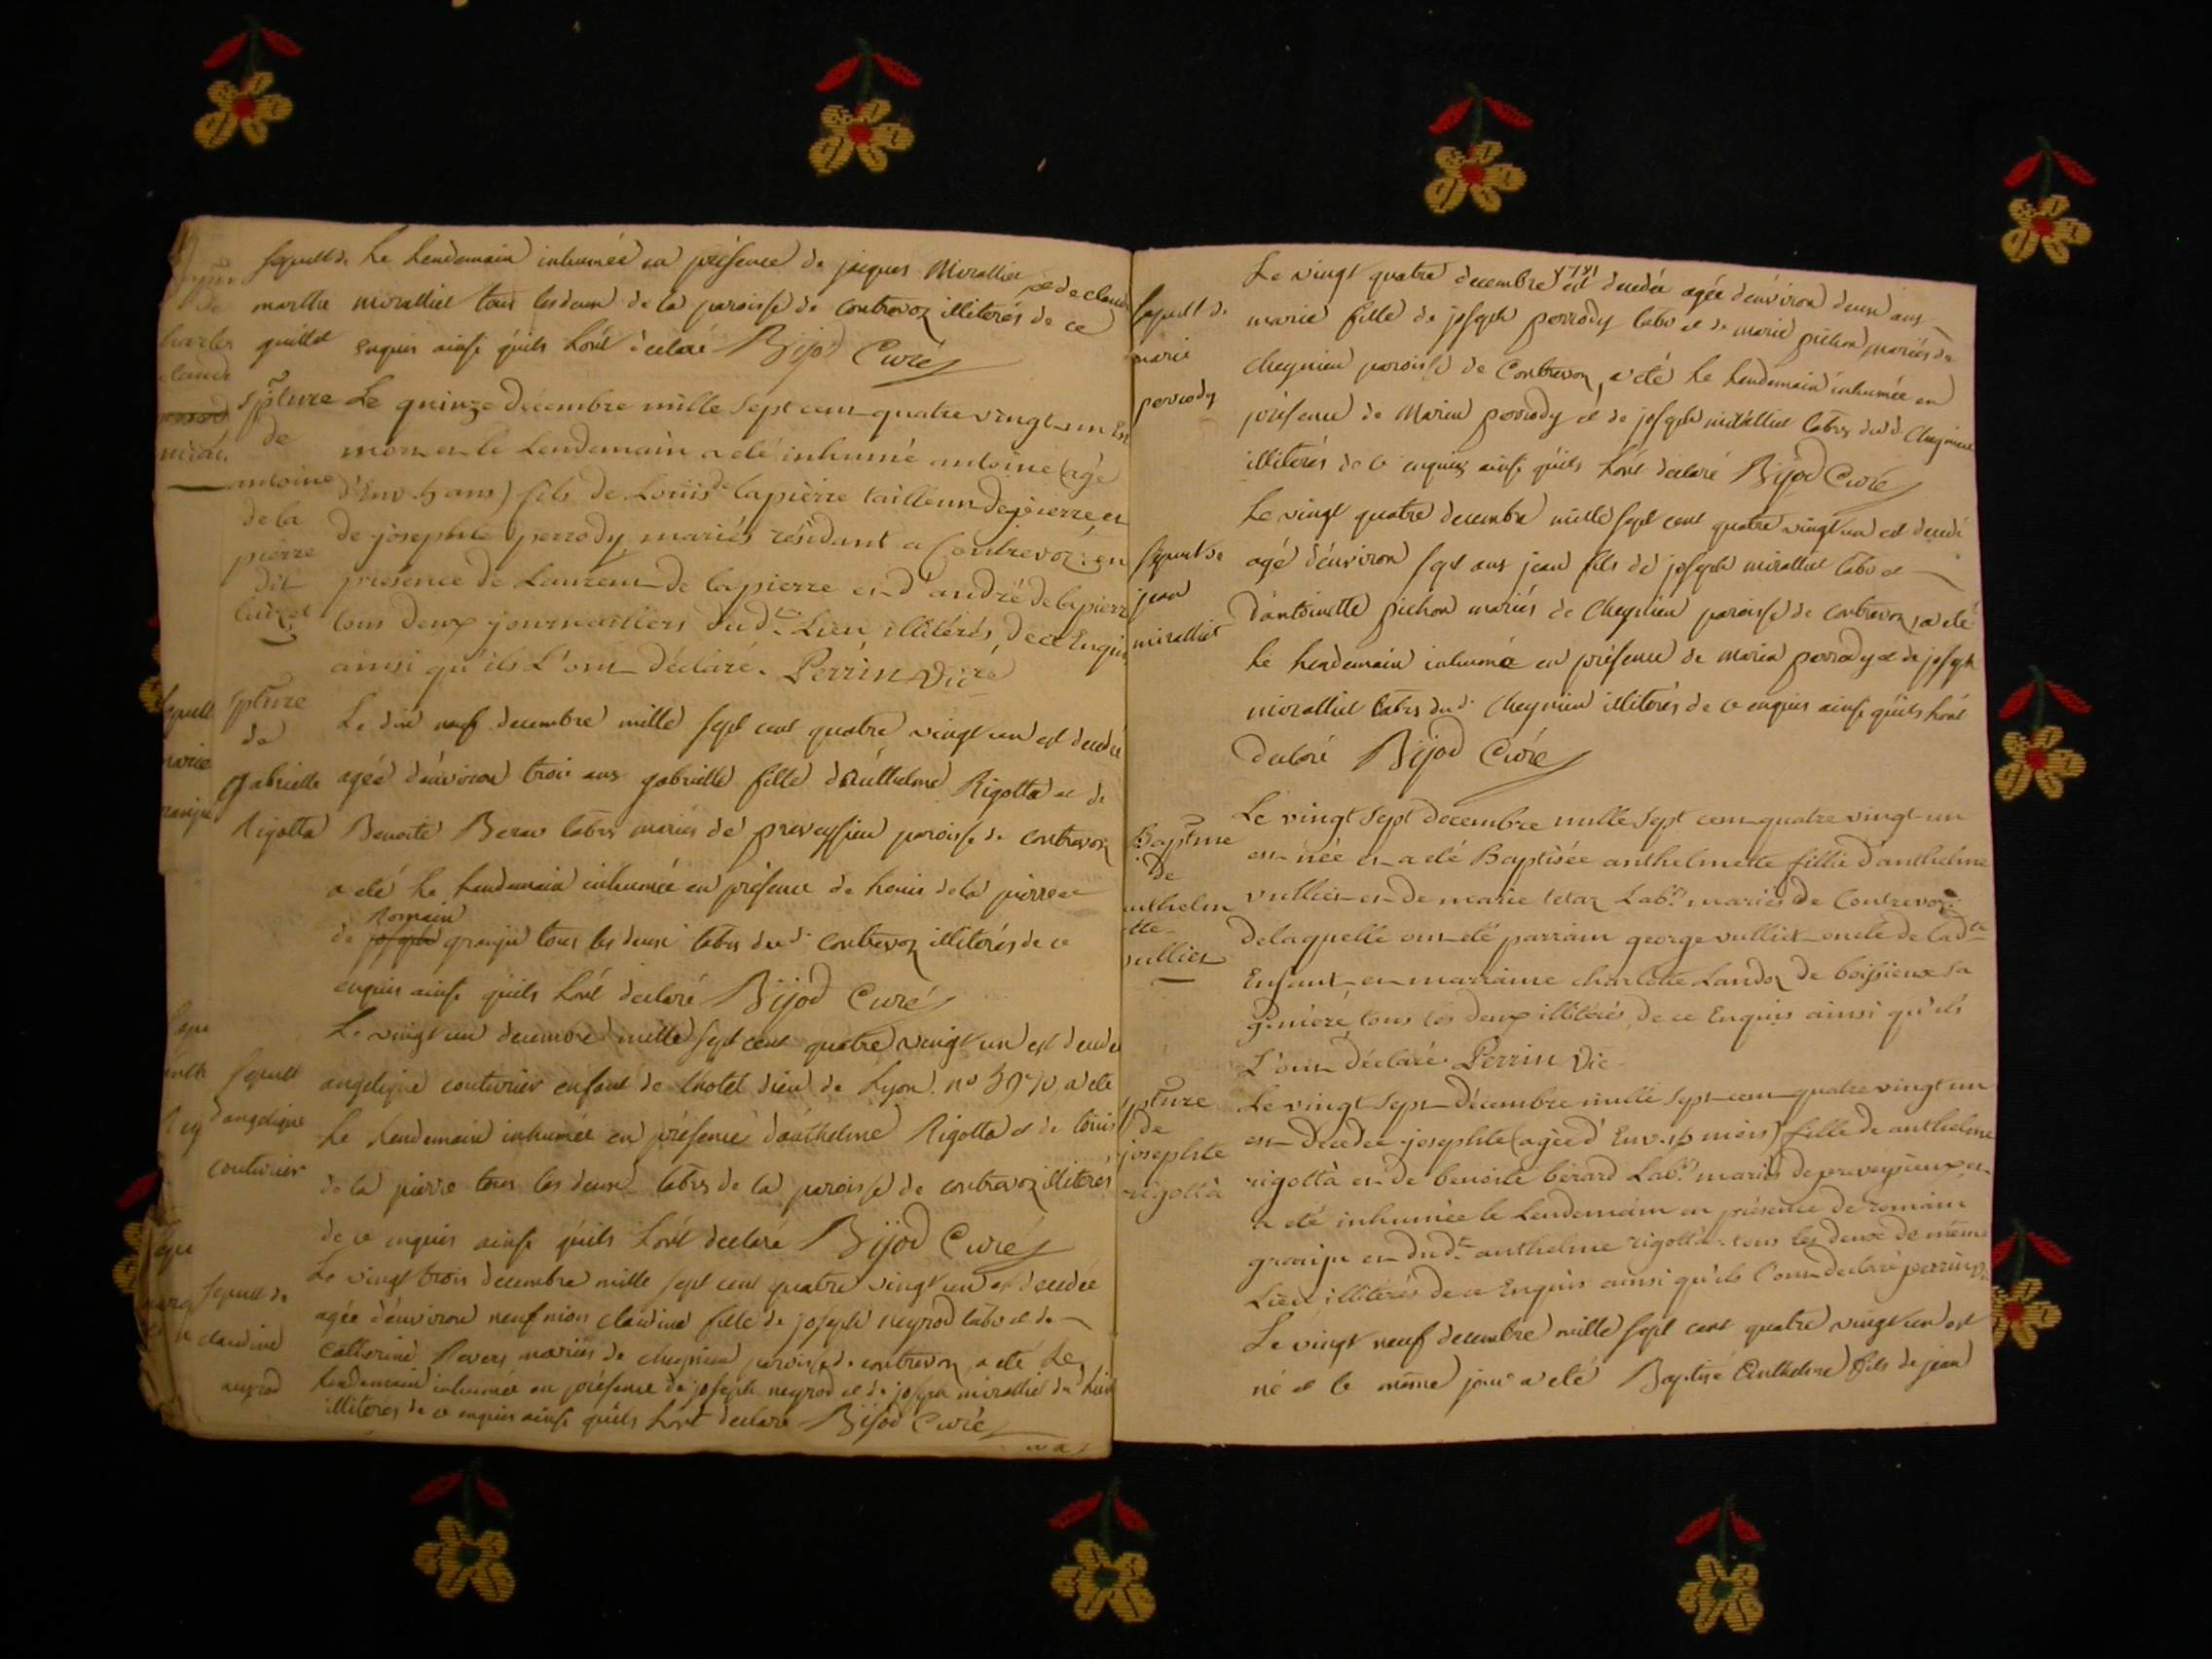 sepult de
marthe
guillot
le lendemain inhumée en présence de jacques Miralliet et de claude
miralliet tous les deux de la paroisse de contrevoz illiterés de ce
enquis ainsi qu'ils l'ont declaré Bijod Curé
spture
de
antoine
de la
pierre
dit
Le quinze décembre mille sept cent quatre vingt un est
mort et le lendemain a eté inhumé antoine (agé
d'env. 5 ans) fils de Louis de lapierre tailleur de pierre et
de josephte perrody mariés résidant a Contrevoz: en
présence de Laurent de lapierre et d'andré de lapierre
tous deux journailliers dud.t Lieu illitérés, de ce Enquis
ainsi qu'ils l'ont déclaré. Perrin Vic.re
spture
de
gabrielle
Rigotta
Le dix neuf decembre mille sept cent quatre vingt un est decedée
agée d'environ trois ans gabrielle fille d'Anthelme Rigotta et de
Benoite Berar labrs mariés de preveyssieu paroisse de contrevoz
a eté le lendemain inhumée en présence de Louis de la pierre et
Romain
de joseph granju tous les deux labrs dud. contrevoz illiterés de ce
enquis ainsi qu'ils l'ont declaré Bijod Curé
sepult
d'angelique
couturier
Le vingt un decembre mille sept cent quatre vingt un est decedée
angelique couturier enfant de l'hotel dieu de Lyon. n° a eté
le lendemain inhumée en présence d'anthelme Rigotta et de louis
de la pierre tous les deux labrs de la paroisse de contrevoz illiterés
de ce enquis ainsi qu'ils l'ont declaré Bijod Curé
sepult de
claudine
neyrod
Le vingt trois decembre mille sept cent quatre vingt un est decedée
agée d'environ neuf mois claudine fille de joseph neyrod labr et de
Catherine Revers mariés de cheynieu paroisse de contrevoz a eté le
lendemain inhumée en présence de joseph neyrod et de joseph miralliet du lieu
illiterés de ce enquis ainsi qu'ils l'ont declaré Bijod Curé
sepult de
marie
perrody
Le vingt quatre decembre 1781 est decedée agée d'environ deux ans
marie fille de joseph perrody labr et de marie pichon mariés de
Cheynieu paroisse de Contrevoz, a eté le lendemain inhumée en
présence de Marin perrody et de joseph miralliet labrs dud. Cheynieu
illiterés de ce enquis ainsi qu'ils l'ont declaré Bijod Curé
sepult de
jean
miralliet
Le vingt quatre decembre mille sept cent quatre vingt un est decedé
agé d'environ sept ans jean fils de joseph miralliet labr et
d'antoinette pichon mariés de Cheynieu paroisse de contrevoz, a eté
le lendemain inhumé en présence de marin perrody et de joseph
miralliet labrs dud. Cheynieu illiterés de ce enquis ainsi qu'ils l'ont
declaré Bijod Curé
Baptme
de
anthelm
ette
vulliet
Le vingt sept décembre mille sept cent quatre vingt un
est née et a eté Baptisée anthelmette fille d'anthelme
vulliet et de marie tetaz Lab.rs mariés de Contrevoz:
de laquelle ont eté parrain george vulliet oncle de lad.te
Enfant et marraine charlotte Landoz de boissieux sa
g. mère, tous les deux illitérés, de ce Enquis ainsi qu'ils
L'ont déclaré. Perrin Vic
spture
de
josephte
rigottà
Le vingt sept décembre mille sept cent quatre vingt un
est decedée josephte (agée d'Env. mois) fille de anthelme
rigottà et de benoite bérard Lab.rs mariés de preveysieux et
a été inhumée le Lendemain en présence de romain
granju et dud.t anthelme rigottà tous les deux de même
Lieu illitérés de ce Enquis ainsi qu'ils l'ont déclaré perrin
Le vingt neuf decembre mille sept cent quatre vingt un est
né et le même jour a eté Baptisé Anthelme fils de jean